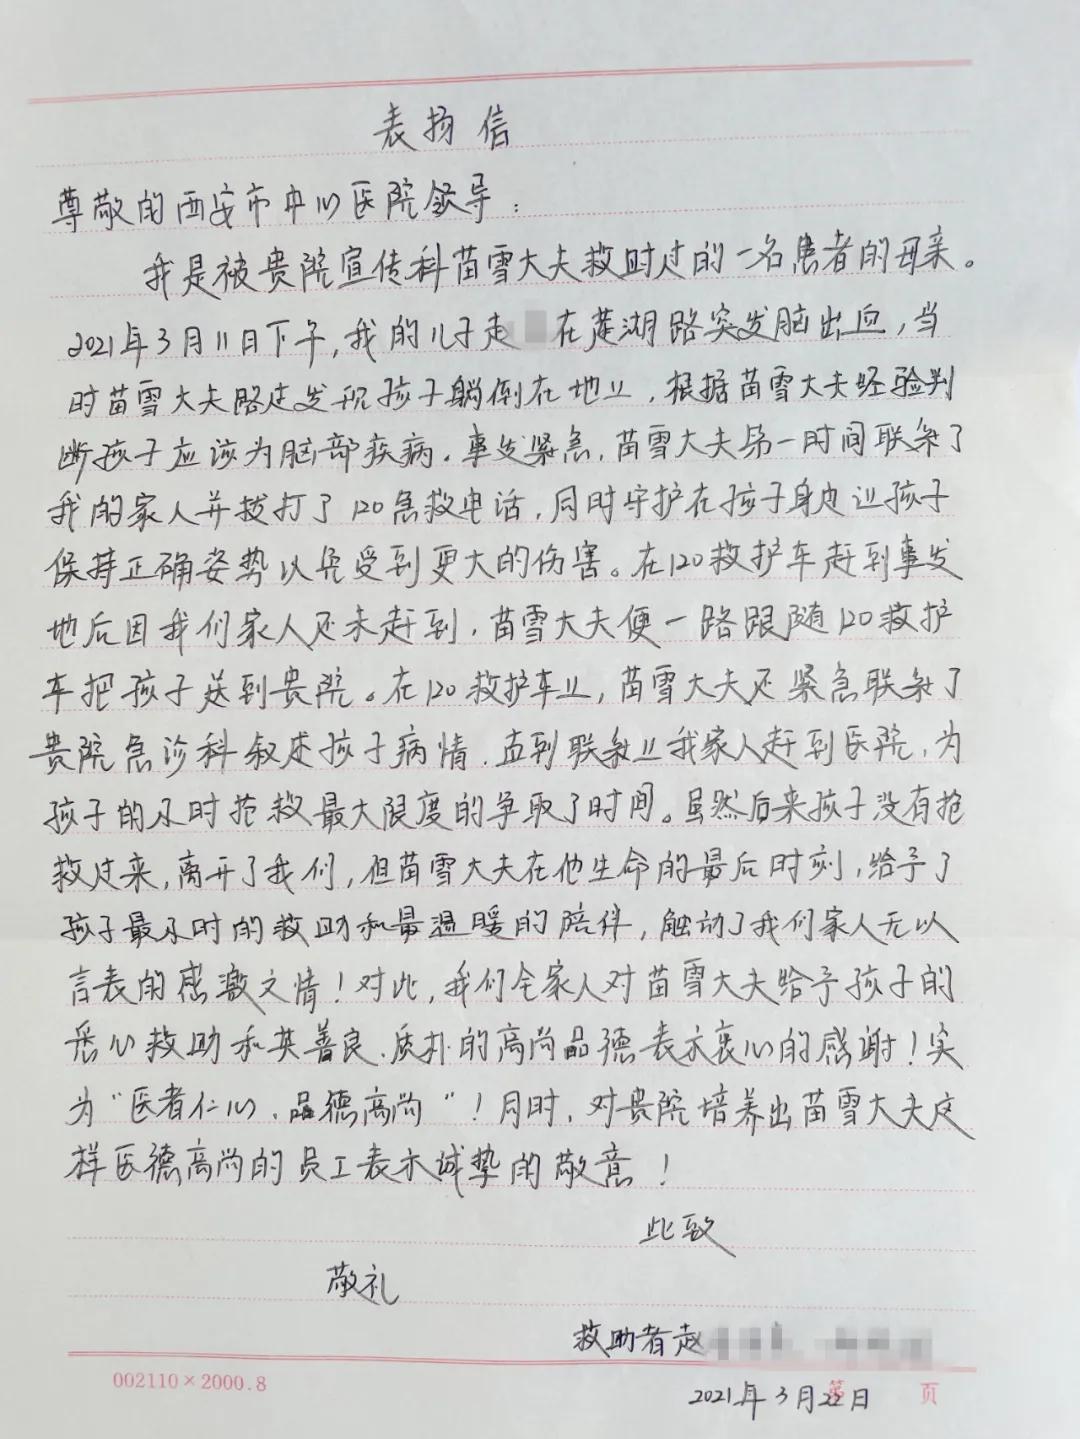 表扬信
尊敬的西安市中心医院领导：
我是被贵院宣传科苗雪大夫救助过的一名患者的母亲。
2021年3月11日下午，我的儿子赵在莲湖路突发脑出血，当
时苗雪大夫路过发现孩子躺倒在地上，根据苗雪大夫经验判
断孩子应该为脑部疾病。事发紧急，苗雪大夫第一时间联系了
我的家人并拨打了120急救电话，同时守护在孩子身边让孩子
保持正确姿势以免受到更大的伤害。在120救护车赶到事发
地后因我们家人还未赶到，苗雪大夫便一路跟随120救护
车把孩子送到贵院。在120救护车上，苗雪大夫还紧急联系了
贵院急诊科叙述孩子病情，直到联系上我家人赶到医院，为
孩子的及时抢救最大限度的争取了时间。虽然后来孩子没有抢
救过来，离开了我们，但苗雪大夫在他生命的最后时刻，给予了
孩子最及时的救助和最温暖的陪伴，触动了我们家人无以
言表的感激之情！对此，我们全家人对苗雪大夫给予孩子的
悉心救助和其善良、质朴的高尚品德表示衷心的感谢！实
为“医者仁心、品德高尚”！同时，对贵院培养出苗雪大夫这
样医德高尚的员工表示诚挚的敬意！
此致
敬礼
救助者赵
002110×2000.8 第 页
2021年3月22日